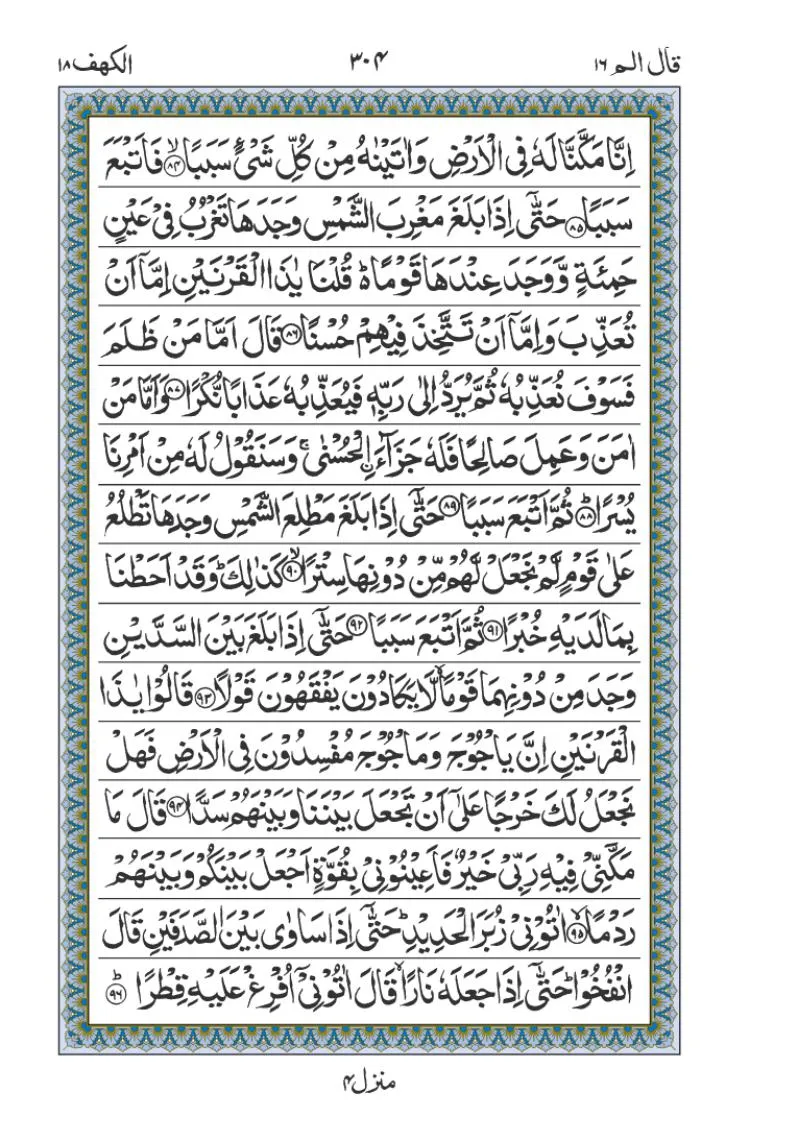 قال الم ١٦ ٣٠٤ الكهف ١٨
اِنَّا مَكَّنَّا لَهٗ فِی الْاَرْضِ وَاٰتَیْنٰهُ مِنْ كُلِّ شَیْءٍ سَبَبًا ۙ‏﴿۸۴﴾ فَاَتْبَعَ
سَبَبًا ﴿۸۵﴾ حَتّٰۤی اِذَا بَلَغَ مَغْرِبَ الشَّمْسِ وَجَدَهَا تَغْرُبُ فِیْ عَیْنٍ
حَمِئَةٍ وَّوَجَدَ عِنْدَهَا قَوْمًا ؕ قُلْنَا یٰذَا الْقَرْنَیْنِ اِمَّاۤ اَنْ
تُعَذِّبَ وَاِمَّاۤ اَنْ تَتَّخِذَ فِیْهِمْ حُسْنًا ﴿۸۶﴾ قَالَ اَمَّا مَنْ ظَلَمَ
فَسَوْفَ نُعَذِّبُهٗ ثُمَّ یُرَدُّ اِلٰی رَبِّهٖ فَیُعَذِّبُهٗ عَذَابًا نُّكْرًا ﴿۸۷﴾ وَاَمَّا مَنْ
اٰمَنَ وَعَمِلَ صَالِحًا فَلَهٗ جَزَآءَ ۨالْحُسْنٰی ۚ وَسَنَقُوْلُ لَهٗ مِنْ اَمْرِنَا
یُسْرًا ؕ﴿۸۸﴾ ثُمَّ اَتْبَعَ سَبَبًا ﴿۸۹﴾ حَتّٰۤی اِذَا بَلَغَ مَطْلِعَ الشَّمْسِ وَجَدَهَا تَطْلُعُ
عَلٰی قَوْمٍ لَّمْ نَجْعَلْ لَّهُمْ مِّنْ دُوْنِهَا سِتْرًا ۙ﴿۹۰﴾ كَذٰلِكَ ؕ وَقَدْ اَحَطْنَا
بِمَا لَدَیْهِ خُبْرًا ﴿۹۱﴾ ثُمَّ اَتْبَعَ سَبَبًا ﴿۹۲﴾ حَتّٰۤی اِذَا بَلَغَ بَیْنَ السَّدَّیْنِ
وَجَدَ مِنْ دُوْنِهِمَا قَوْمًا ۙ لَّا یَكَادُوْنَ یَفْقَهُوْنَ قَوْلًا ﴿۹۳﴾ قَالُوْا یٰذَا
الْقَرْنَیْنِ اِنَّ یَاْجُوْجَ وَمَاْجُوْجَ مُفْسِدُوْنَ فِی الْاَرْضِ فَهَلْ
نَجْعَلُ لَكَ خَرْجًا عَلٰۤی اَنْ تَجْعَلَ بَیْنَنَا وَبَیْنَهُمْ سَدًّا ﴿۹۴﴾ قَالَ مَا
مَكَّنِّیْ فِیْهِ رَبِّیْ خَیْرٌ فَاَعِیْنُوْنِیْ بِقُوَّةٍ اَجْعَلْ بَیْنَكُمْ وَبَیْنَهُمْ
رَدْمًا ۙ﴿۹۵﴾ اٰتُوْنِیْ زُبَرَ الْحَدِیْدِ ؕ حَتّٰۤی اِذَا سَاوٰی بَیْنَ الصَّدَفَیْنِ قَالَ
انْفُخُوْا ؕ حَتّٰۤی اِذَا جَعَلَهٗ نَارًا ۙ قَالَ اٰتُوْنِیْۤ اُفْرِغْ عَلَیْهِ قِطْرًا ؕ﴿۹۶﴾
منزل ۴